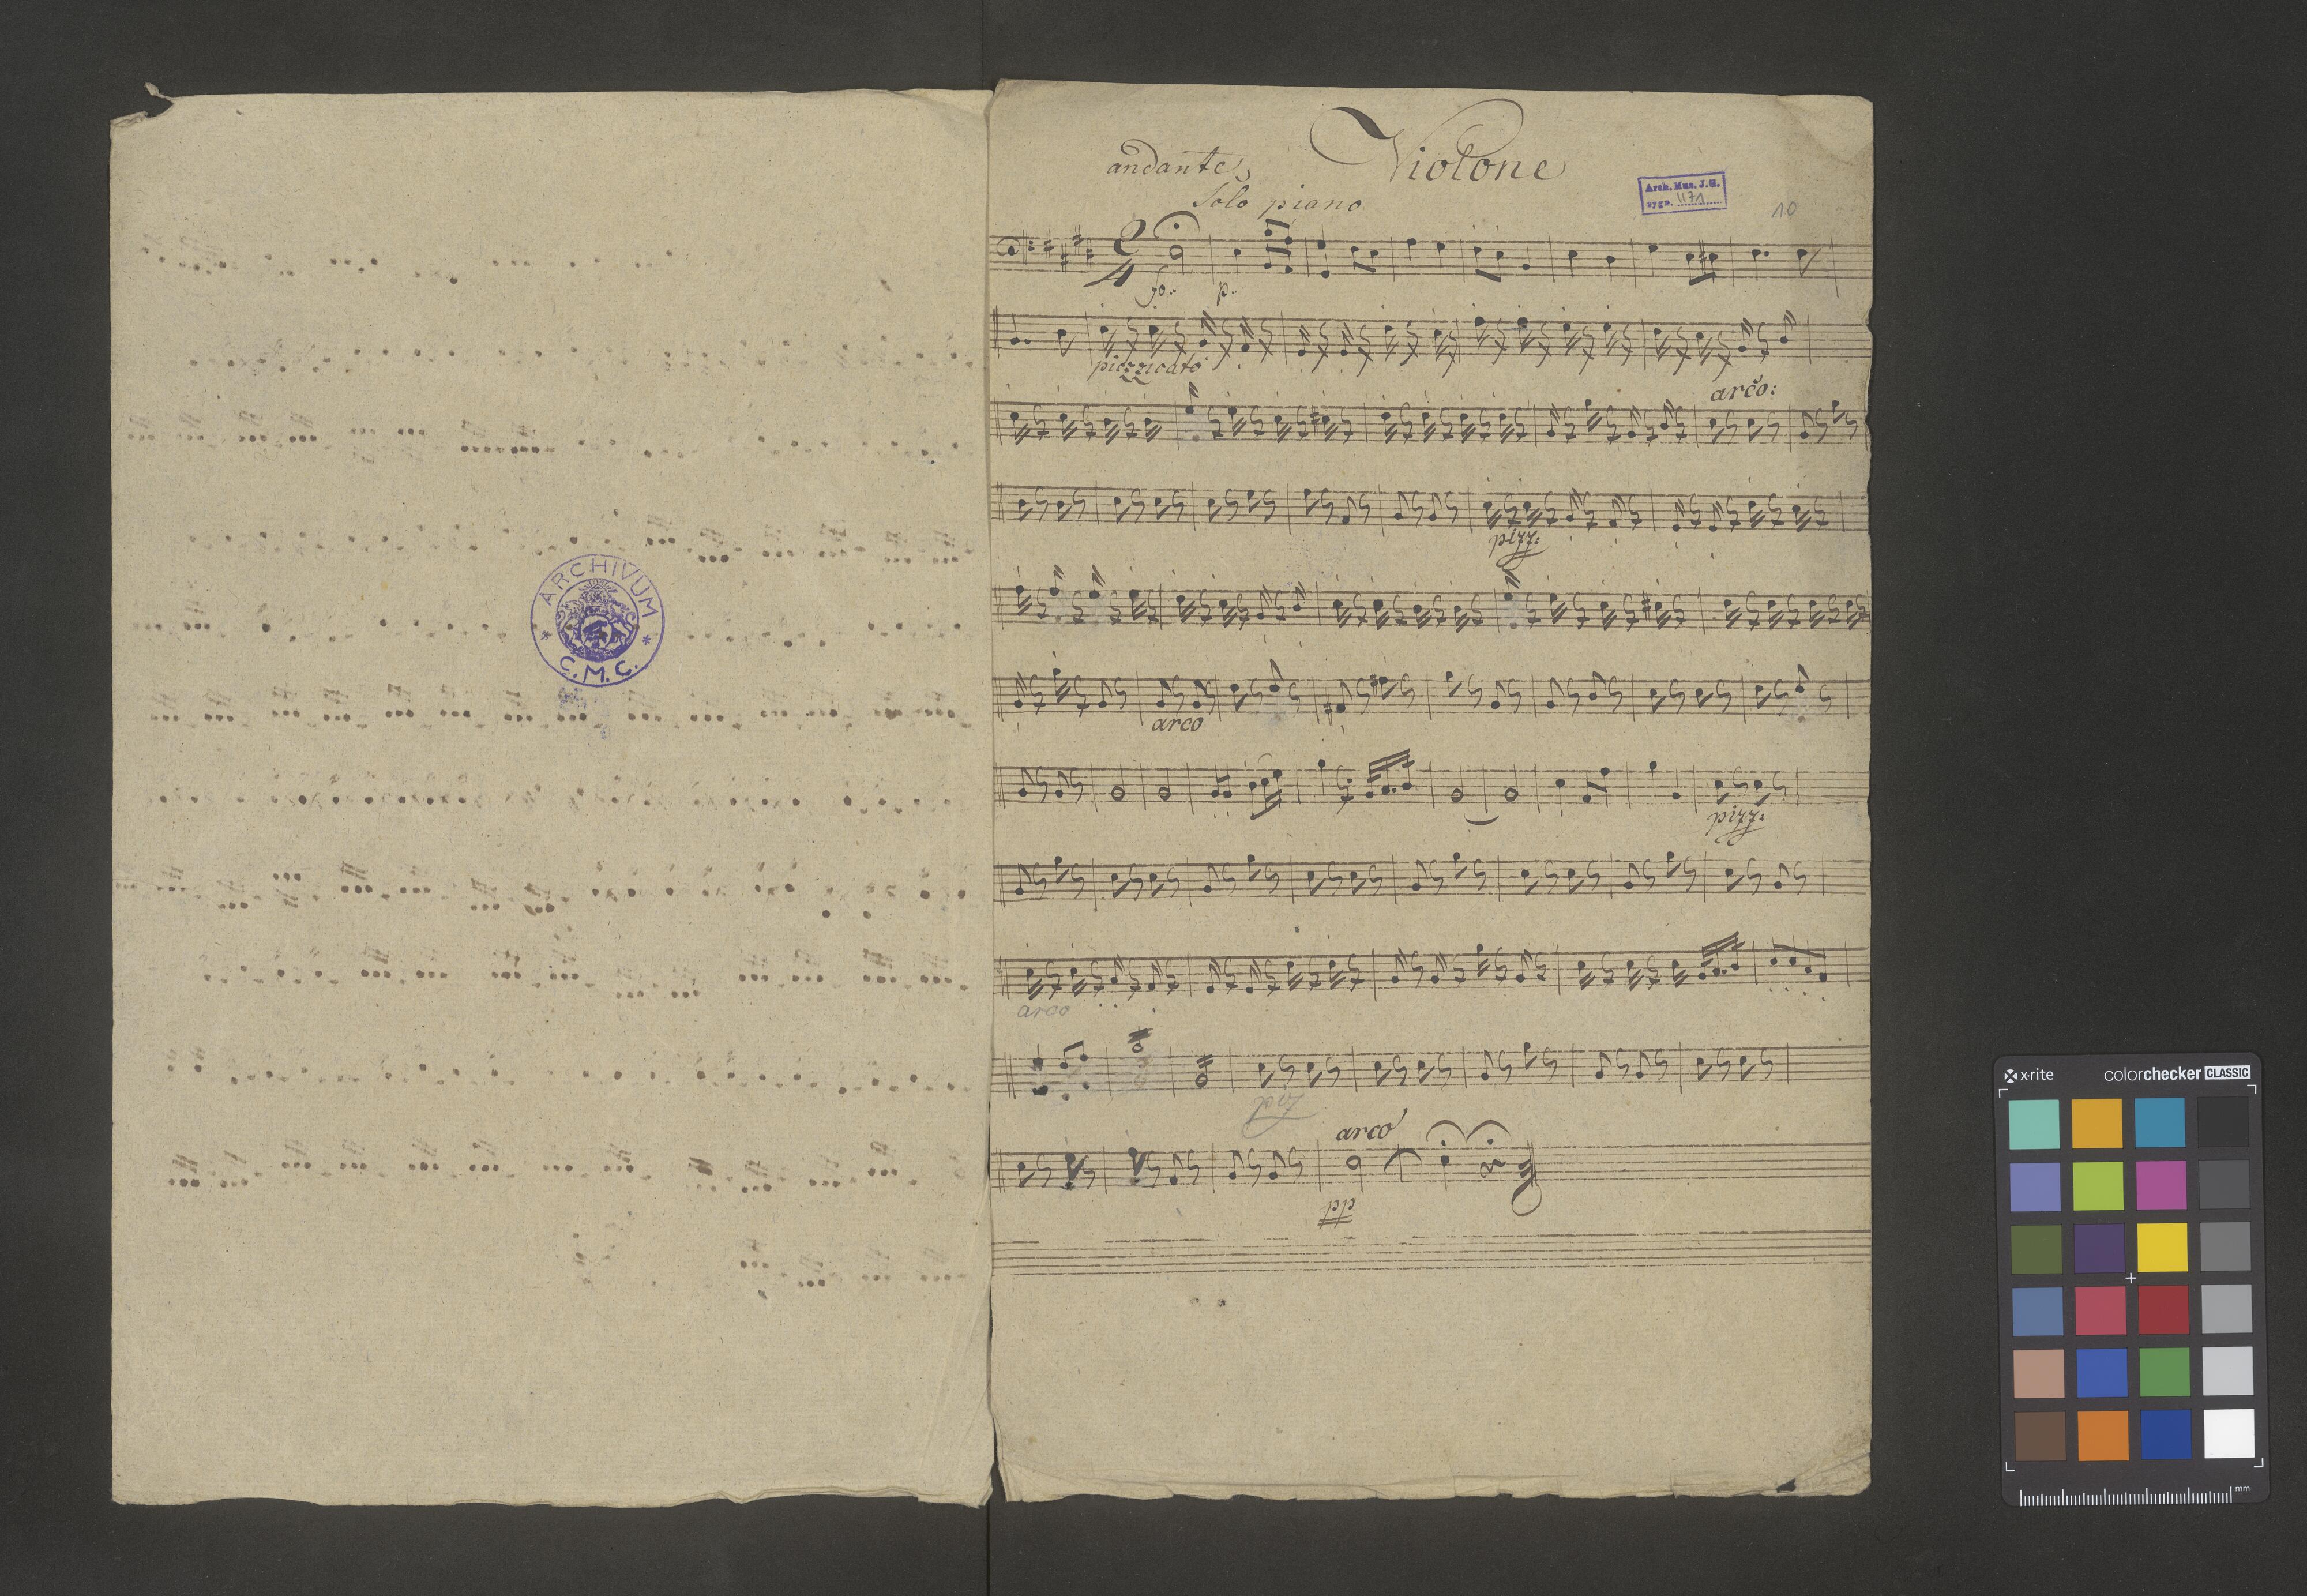 ARCHIVUM
* C.M.C. *
Violone
andante
Solo piano
Arch. Mus. J.G.
sygn. 1171
10
2
4
fo..
p..
piozzicato
arco:
pizz:
arco
pizz:
arco
arco
pp
x·rite
colorchecker CLASSIC
mm